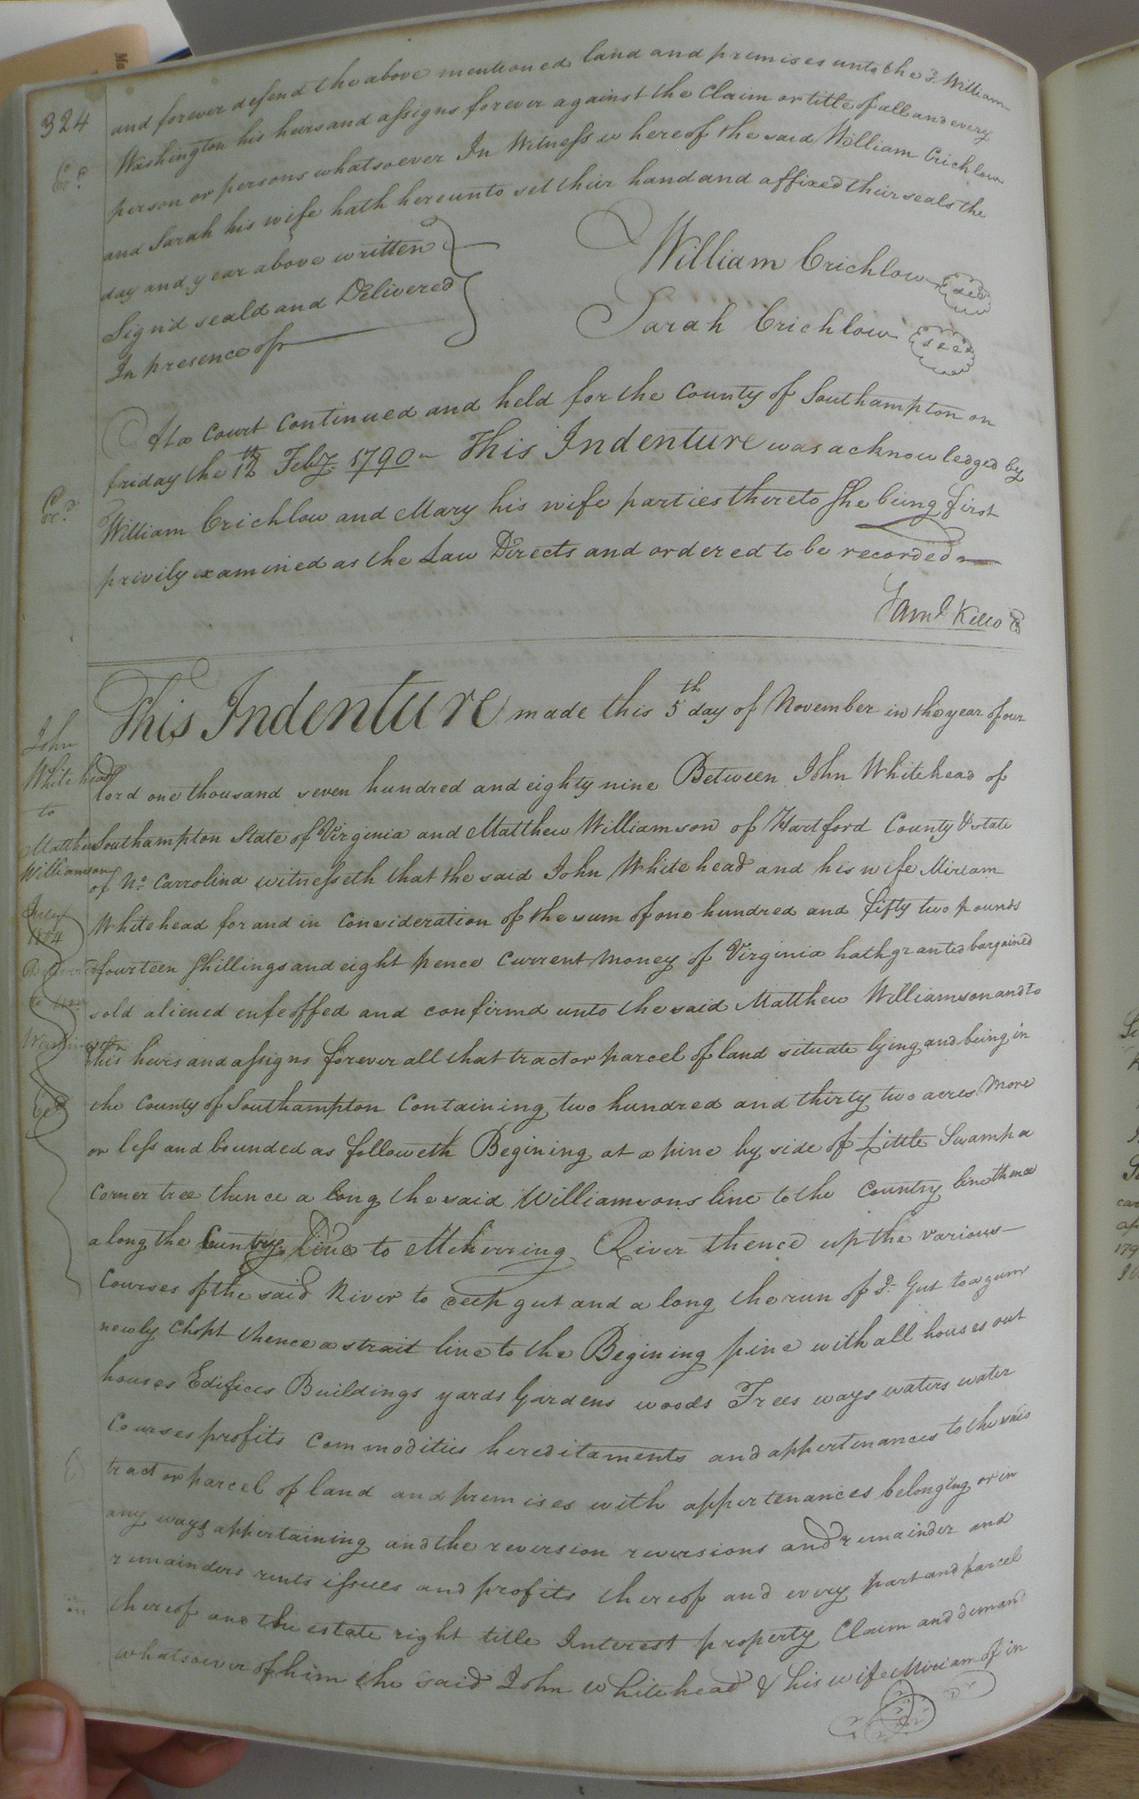 324
and forever defend the above mentioned land and premises unto the s. William
Washington his heirs and assigns forever against the Claim or title of all and every
person or persons whatsoever In Witness whereof the said William Crichlow
and Sarah his wife hath hereunto set their hand and affixed their seals the
day and year above written
Sign'd seald and Delivered
In presence of
William Crichlow seal
Sarah Crichlow seal
At a Court Continued and held for the County of Southampton on
friday the 12th Feby. 1790 This Indenture was acknowledged by
William Crichlow and Mary his wife parties thereto She being first
privily examined as the Law Directs and ordered to be recorded
Saml Kello
This Indenture made this 5th day of November in the year of our
John
Whitehead
to
Matthew
Williamson
lord one thousand seven hundred and eighty nine Between John Whitehead of
Southampton State of Virginia and Matthew Williamson of Hartford County & state
of No. Carrolina witnesseth that the said John Whitehead and his wife Miriam
Whitehead for and in Consideration of the sum of one hundred and fifty two pounds
fourteen Shillings and eight pence Current Money of Virginia hath granted bargained
sold aliened enfeoffed and confirmd unto the said Matthew Williamson and to
his heirs and assigns forever all that tract or parcel of land situate lying and being in
the County of Southampton Containing two hundred and thirty two acres More
or less and bounded as followeth Begining at a pine by side of Little Swamp a
Corner tree thence a long the said Williamsons line to the Country line thence
along the Cuntry Line to Meherring River thence up the various
Courses of the said River to deep gut and a long the run of sd. Gut to a gum
newly Chopt thence a strait line to the Begining pine with all houses out
houses Edifices Buildings yards Gardens woods Trees ways waters water
Courses profits Commodities hereditaments and appertenances to the said
tract or parcel of land and premises with appertenances belonging or in
any ways appertaining and the reversion reversions and remainder and
remainders rents issues and profits thereof and every part and parcel
thereof and the estate right title Interest property Claim and demand
whatsoever of him the said John Whitehead & his wife Miriam of in